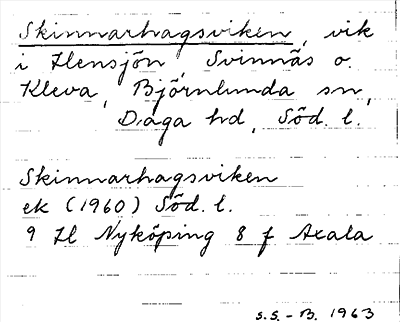 Skinnarhagsviken, vik
i Hensjön, Svinnäs o.
Kleva, Björnlunda sn,
Daga hd, Söd. l.
Skinnarhagsviken
ek (1960) Söd. l.
9 H Nyköping 8 f Axala
S.S. - B. 1963